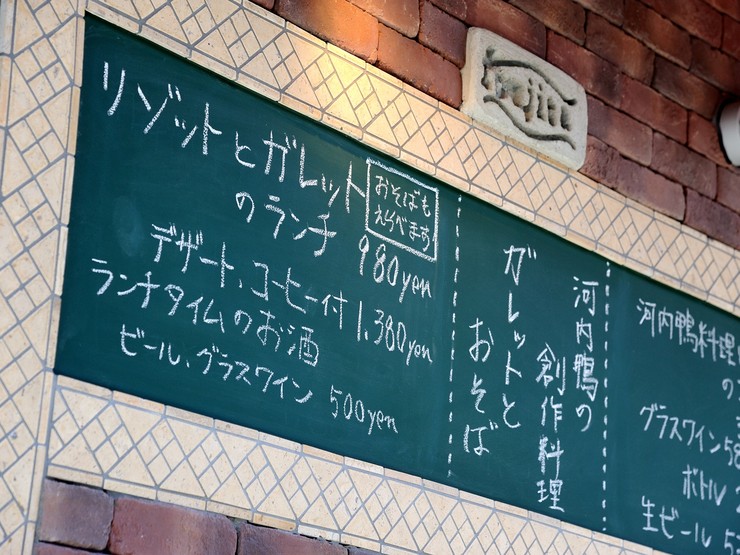 リゾットとガレット
のランチ
おそばも
えらべます
980yen
デザート、コーヒー付 1,380yen
ランチタイムのお酒
ビール、グラスワイン 500yen
河内鴨の
創作料理
ガレットと
おそば
河内鴨料理
の
グラスワイン5
ボトル
生ビール 5